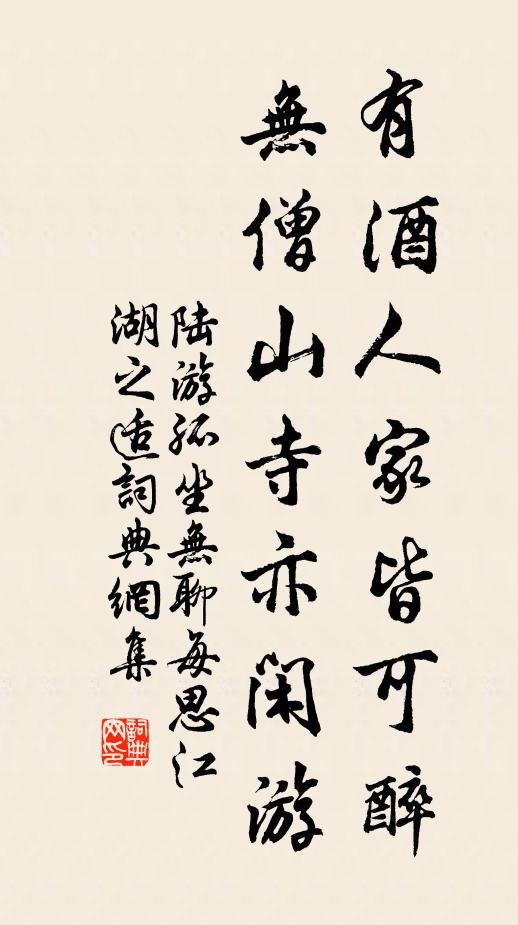 有酒人家皆可醉
無僧山寺亦閑游
陆游孤坐無聊每思江
湖之适詞典網集
詞典网印